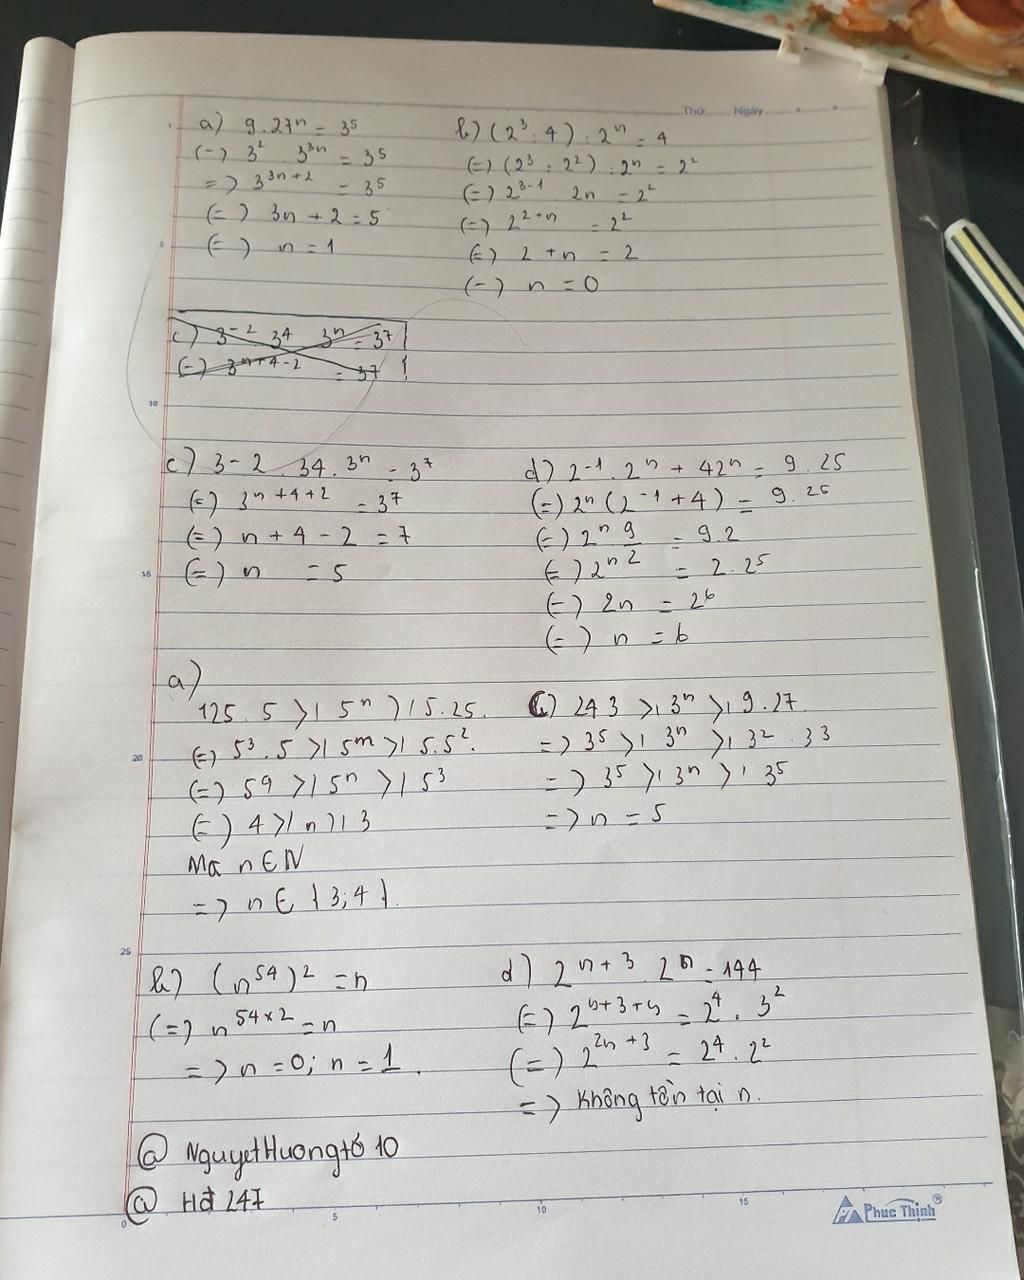 Thứ Ngày
a) 9.27ⁿ = 3⁵
(=) 3² 3³ⁿ = 3⁵
=> 3³ⁿ⁺² = 3⁵
(=) 3n + 2 = 5
(=) n = 1
b) (2³ : 4) . 2ⁿ = 4
(=) (2³ : 2²) . 2ⁿ = 2²
(=) 2³⁻¹ 2n = 2²
(=) 2²⁺ⁿ = 2²
(=) 2 + n = 2
(=) n = 0
c) 3⁻² 3⁴ 3ⁿ = 3⁷
(=) 3ⁿ⁺⁴⁻² = 37
c) 3 - 2 . 34 . 3ⁿ = 3⁷
(=) 3ⁿ⁺⁴⁺² = 3⁷
(=) n + 4 - 2 = 7
(=) n = 5
d) 2⁻¹ . 2ⁿ + 42ⁿ = 9.25
(=) 2ⁿ (2⁻¹ + 4) = 9.25
(=) 2ⁿ 9 = 9.2
(=) 2ⁿ 2 = 2.2⁵
(=) 2n = 2⁶
(=) n = 6
a)
125.5 >| 5ⁿ >| 5.25.
(=) 5³.5 >| 5ᵐ >| 5.5².
(=) 59 >| 5ⁿ >| 5³
(=) 4 >| n >| 3
Ma n ∈ N
=> n ∈ {3;4}.
C) 243 >| 3ⁿ >| 9.27.
=> 3⁵ >| 3ⁿ >| 3² . 33
=> 3⁵ >| 3ⁿ >| 35
=> n = 5
b) (n⁵⁴)² = n
(=) n⁵⁴ˣ² = n
=> n = 0; n = 1.
d) 2ⁿ⁺³ 2ⁿ = 144
(=) 2ⁿ⁺³⁺ⁿ = 2⁴ . 3²
(=) 2²ⁿ⁺³ = 2⁴ . 2²
=> Không tồn tại n.
@ NguyetHuongtó 10
@ Hđ 247
5
10
15
20
25
0 5 10 15
Phuc Thinh®